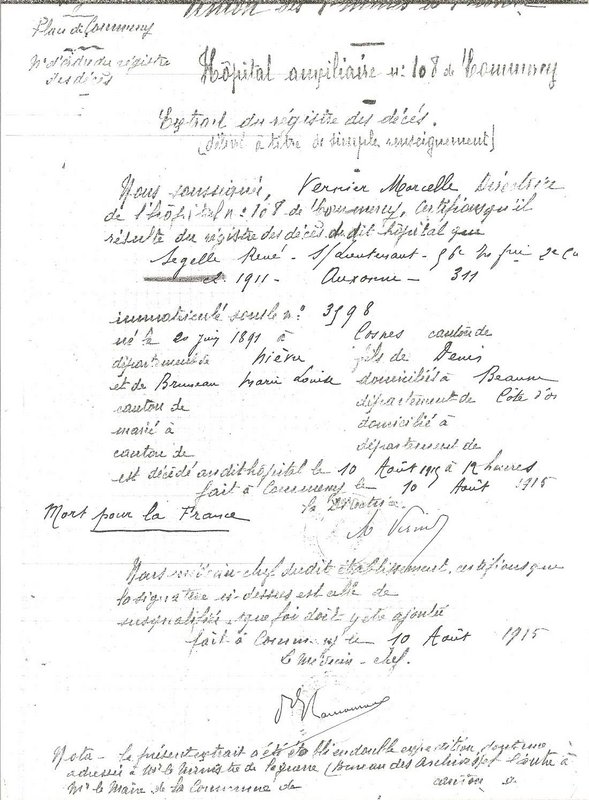 Union des Femmes de France
Place de Commercy
N° d'ordre du registre
des décès
Hôpital auxiliaire n° 108 de Commercy
Extrait du régistre des décès.
(délivré à titre de simple renseignement)
Nous soussigné, Vernier Marcelle Directrice
de l'hôpital n° 108 de Commercy, certifions qu'il
résulte du régistre des décès du dit hôpital que
Segelle René - S/Lieutenant - 56e 2e Cie
cl 1911 - Auxonne - 311
immatriculé sous le n° 3598
né le 20 juin 1891 à Cosnes canton de
département de Nièvre fils de Denis
et de Bruneau Marie Louise domiciliés à Beaune
canton de département de Côte d'or
marié à domicilié à
canton de département de
est décédé audit hôpital le 10 Août 1915 à 12 heures
fait à Commercy le 10 Août 1915
la Directrice
Mort pour la France
Nous médecin-chef du dit établissement, certifions que
la signature ci-dessus est celle de
et que foi doit y être ajoutée
fait à Commercy le 10 Août 1915
le Médecin-chef.
Nota - le présent extrait a été établi en double expédition, dont une
adressée à Mr le Ministre de la guerre (bureau des Archives) et l'autre à
Mr le Maire de la Commune de canton de